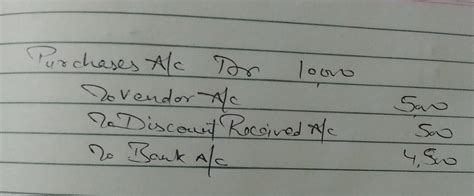 Purchases A/c Dr 10,000
To Vendor A/c 5,000
To Discount Received A/c 500
To Bank A/c 4,500